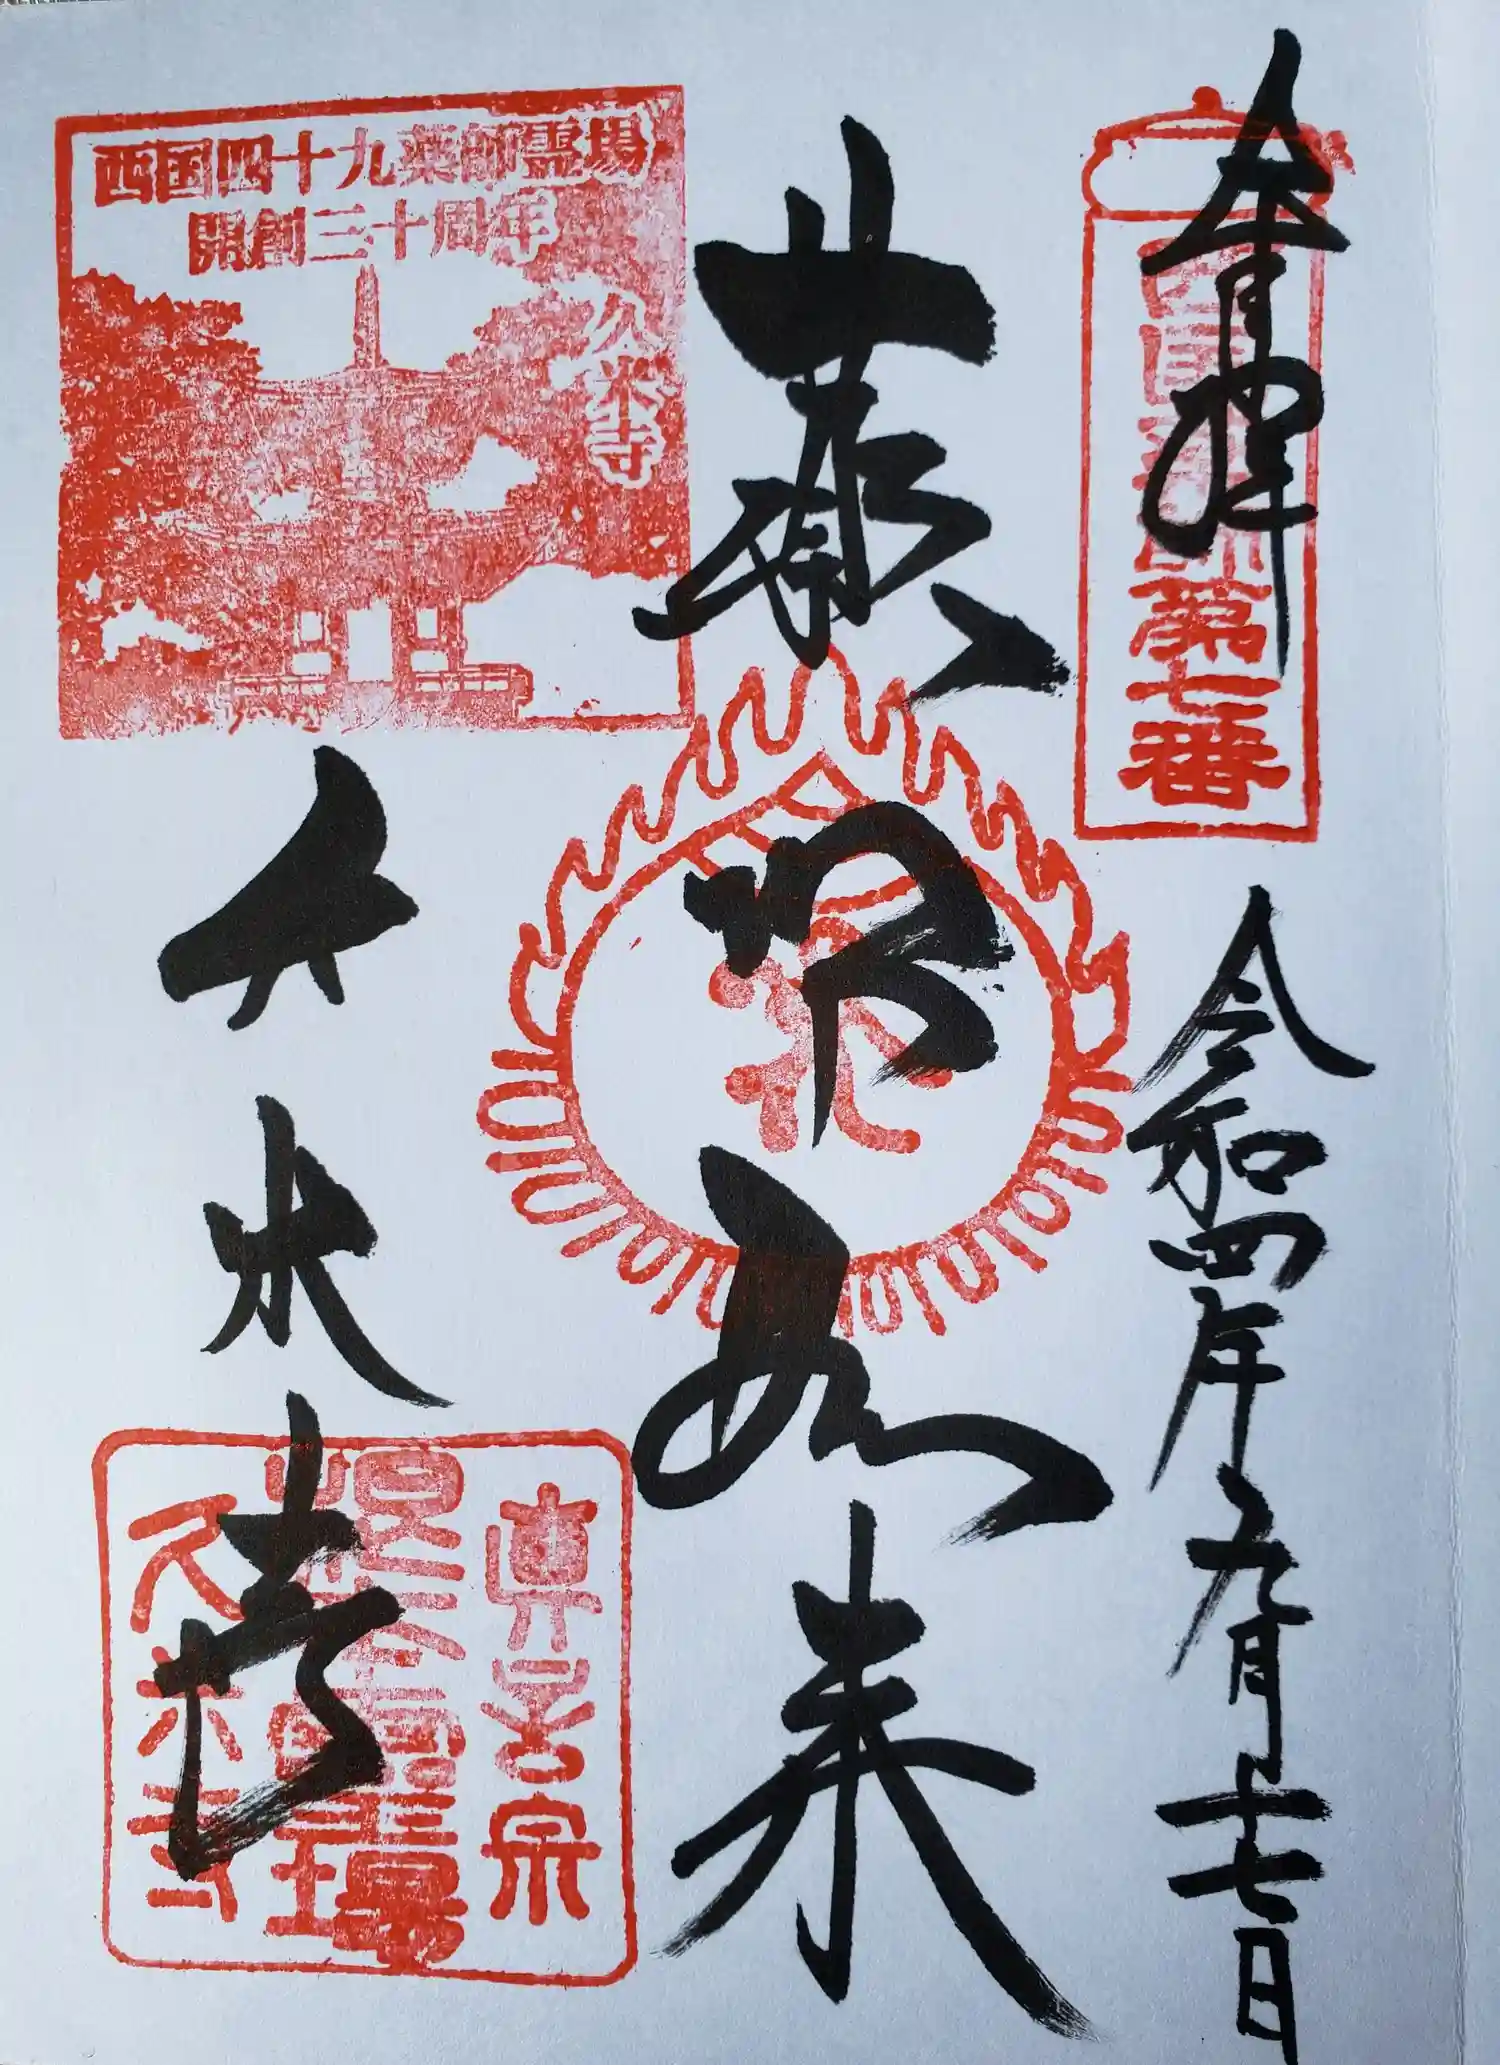 奉拝
西国薬師第七番
令和四年九月十七日
薬師如来
西国四十九薬師霊場
開創三十周年
久米寺
久米寺
真言宗
久米寺